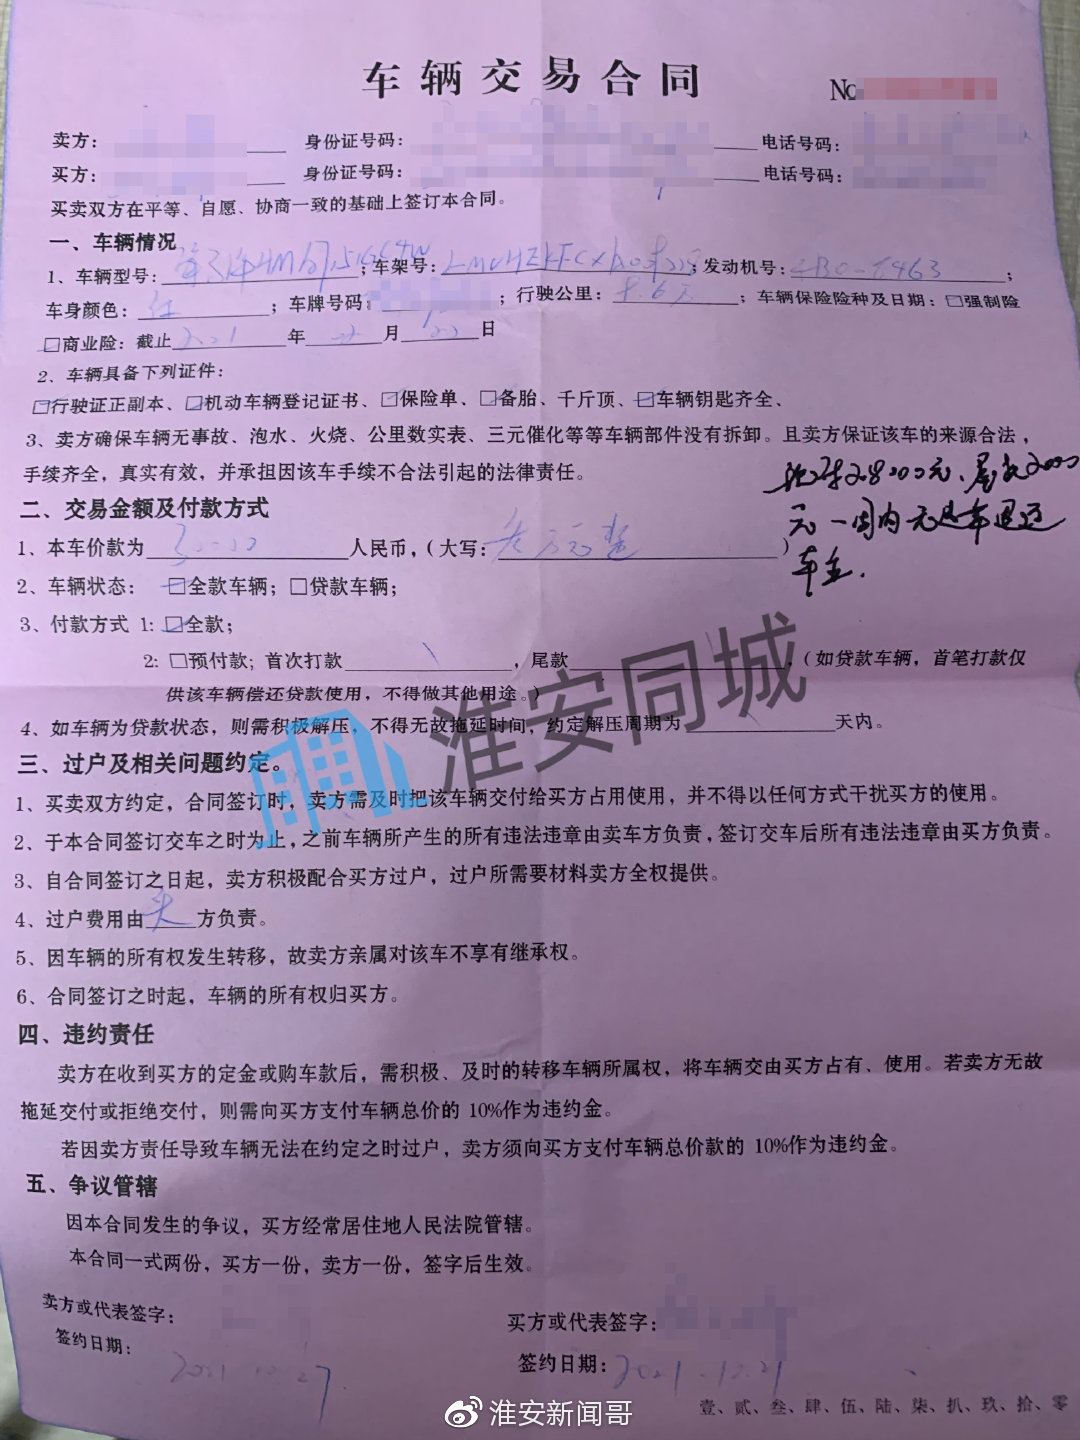 车辆交易合同
No
卖方： 身份证号码： 电话号码：
买方： 身份证号码： 电话号码：
买卖双方在平等、自愿、协商一致的基础上签订本合同。
一、车辆情况
1、车辆型号： ；车架号： ；发动机号： ；
车身颜色：红 ；车牌号码： ；行驶公里： ；车辆保险险种及日期：□强制险
□商业险：截止2021年 月 日
2、车辆具备下列证件：
□行驶证正副本、□机动车辆登记证书、□保险单、□备胎、千斤顶、□车辆钥匙齐全、
3、卖方确保车辆无事故、泡水、火烧、公里数实表、三元催化等等车辆部件没有拆卸。且卖方保证该车的来源合法，
手续齐全，真实有效，并承担因该车手续不合法引起的法律责任。
28000元、尾款2000
元一周内无 车退还
车主.
二、交易金额及付款方式
1、本车价款为30000人民币，（大写：叁万元整）
2、车辆状态：□全款车辆；□贷款车辆；
3、付款方式 1：□全款；
2：□预付款；首次打款 ，尾款 ，（如贷款车辆，首笔打款仅
供该车辆偿还贷款使用，不得做其他用途。）
4、如车辆为贷款状态，则需积极解压，不得无故拖延时间，约定解压周期为 天内。
淮安同城
三、过户及相关问题约定。
1、买卖双方约定，合同签订时，卖方需及时把该车辆交付给买方占用使用，并不得以任何方式干扰买方的使用。
2、于本合同签订交车之时为止，之前车辆所产生的所有违法违章由卖车方负责，签订交车后所有违法违章由买方负责。
3、自合同签订之日起，卖方积极配合买方过户，过户所需要材料卖方全权提供。
4、过户费用由买方负责。
5、因车辆的所有权发生转移，故卖方亲属对该车不享有继承权。
6、合同签订之时起，车辆的所有权归买方。
四、违约责任
卖方在收到买方的定金或购车款后，需积极、及时的转移车辆所属权，将车辆交由买方占有、使用。若卖方无故
拖延交付或拒绝交付，则需向买方支付车辆总价的 10%作为违约金。
若因卖方责任导致车辆无法在约定之时过户，卖方须向买方支付车辆总价款的 10%作为违约金。
五、争议管辖
因本合同发生的争议，买方经常居住地人民法院管辖。
本合同一式两份，买方一份，卖方一份，签字后生效。
卖方或代表签字： 买方或代表签字：
签约日期：2021.10.27 签约日期：2021.
壹、贰、叁、肆、伍、陆、柒、扒、玖、拾、零
淮安新闻哥